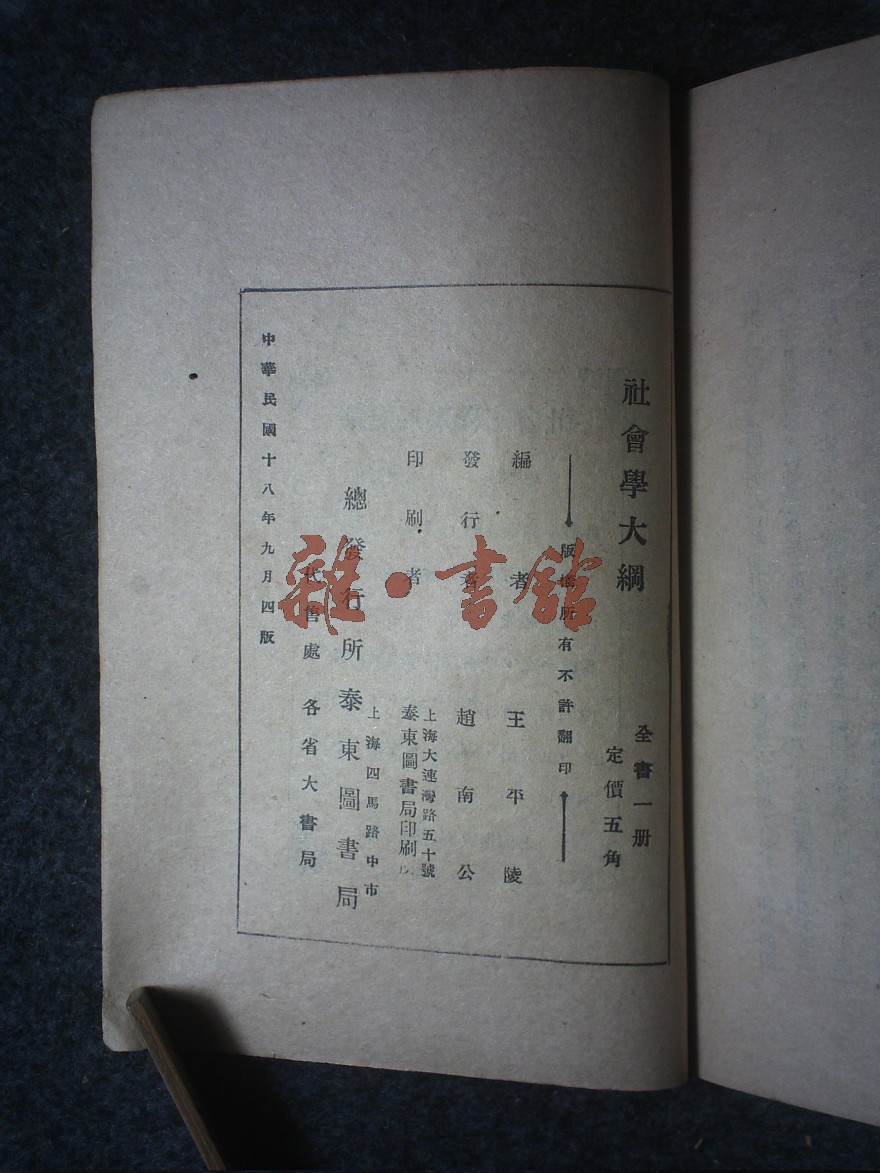 社會學大綱
全書一册
定價五角
版權所有不許翻印
編者 王平陵
發行者 趙南公
印刷者
上海大連灣路五十號
泰東圖書局印刷
上海四馬路中市
總發行所 泰東圖書局
代售處 各省大書局
中華民國十八年九月四版
雜·書館